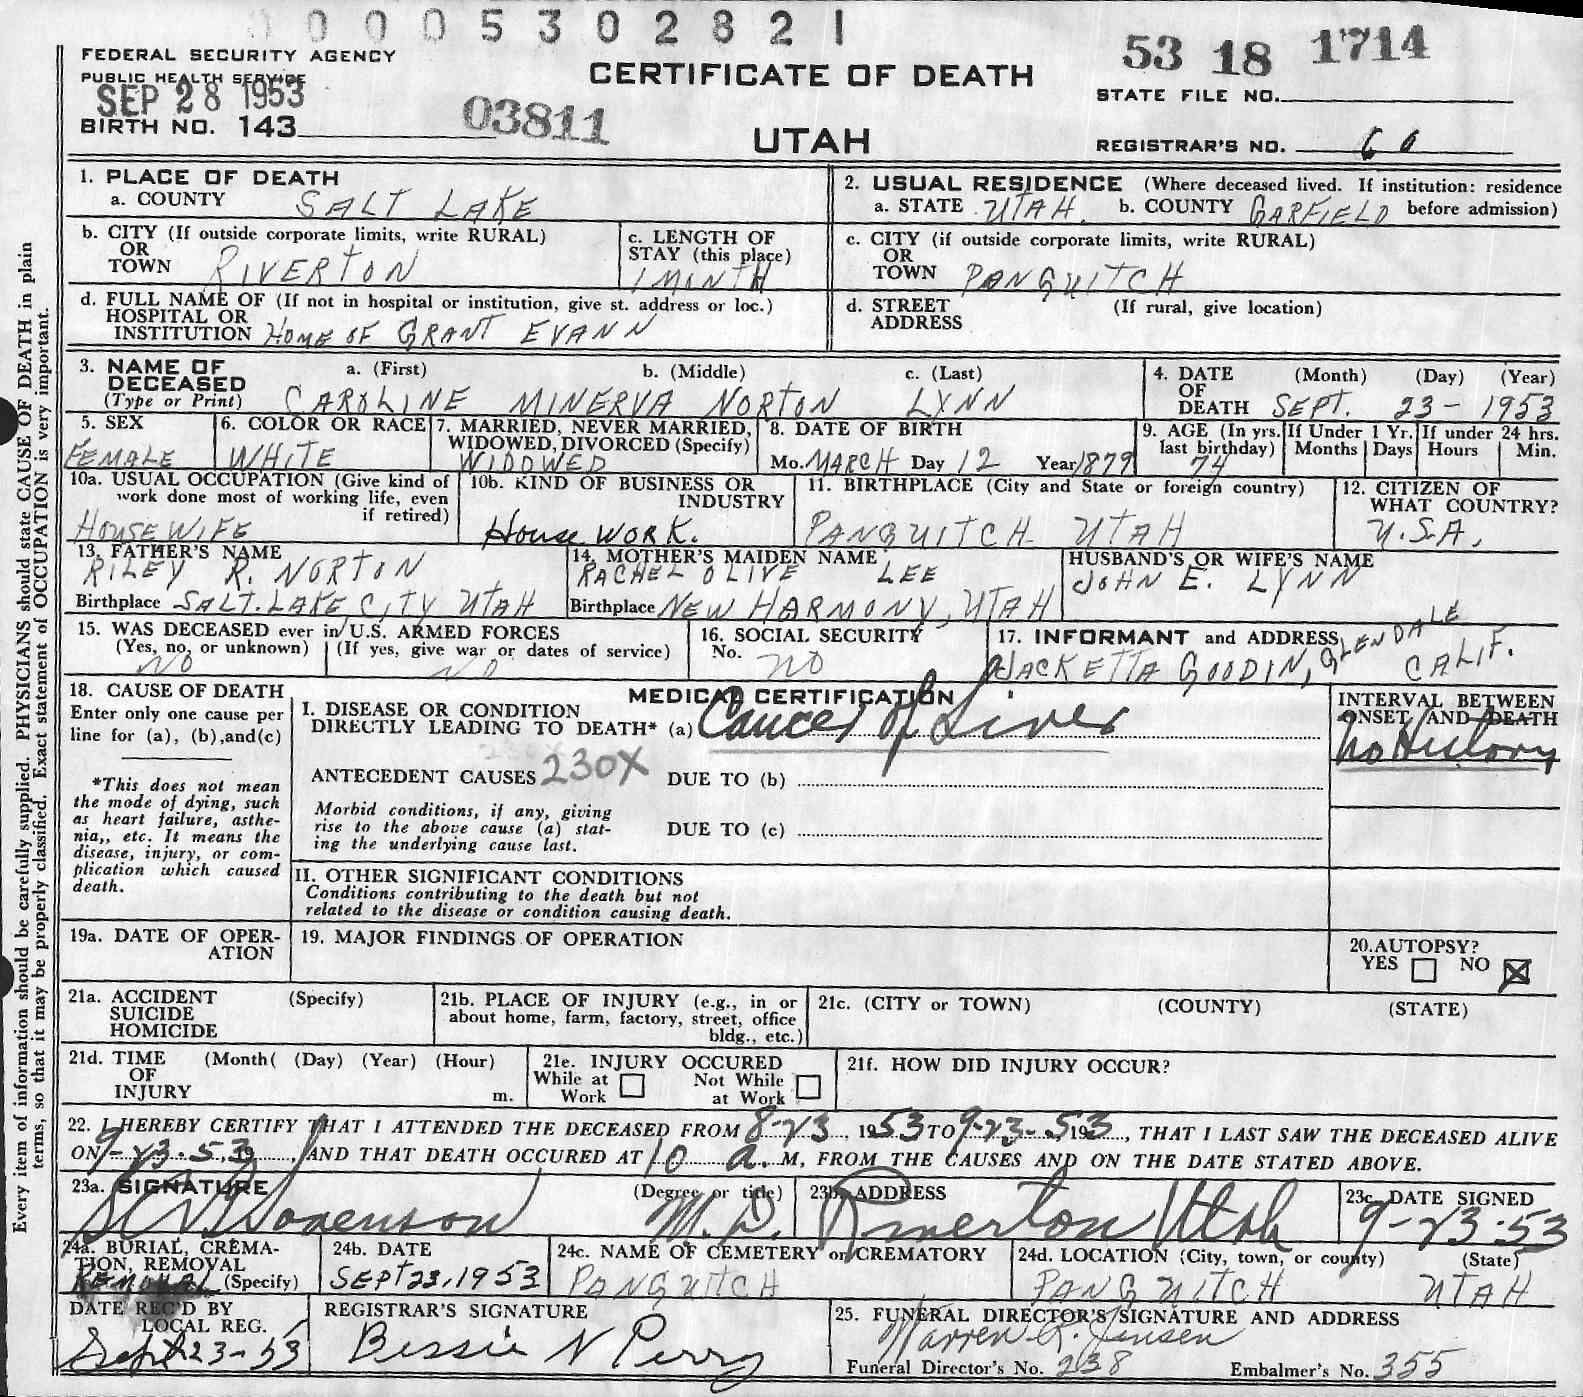 0 0 0 5 3 0 2 8 2 1
FEDERAL SECURITY AGENCY
PUBLIC HEALTH SERVICE
SEP 28 1953
BIRTH NO. 143
03811
CERTIFICATE OF DEATH
UTAH
53 18 1714
STATE FILE NO.
REGISTRAR'S NO. 60
1. PLACE OF DEATH
a. COUNTY SALT LAKE
b. CITY (If outside corporate limits, write RURAL)
OR
TOWN RIVERTON
c. LENGTH OF
STAY (this place)
1 MONTH
d. FULL NAME OF (If not in hospital or institution, give st. address or loc.)
HOSPITAL OR
INSTITUTION HOME OF GRANT EVANN
2. USUAL RESIDENCE (Where deceased lived. If institution: residence
a. STATE UTAH. b. COUNTY GARFIELD before admission)
c. CITY (if outside corporate limits, write RURAL)
OR
TOWN PANGUITCH
d. STREET (If rural, give location)
ADDRESS
3. NAME OF a. (First) b. (Middle) c. (Last)
DECEASED
(Type or Print) CAROLINE MINERVA NORTON LYNN
4. DATE (Month) (Day) (Year)
OF
DEATH SEPT. 23- 1953
5. SEX
FEMALE
6. COLOR OR RACE
WHITE
7. MARRIED, NEVER MARRIED,
WIDOWED, DIVORCED (Specify)
WIDOWED
8. DATE OF BIRTH
Mo. MARCH Day 12 Year 1879
9. AGE (In yrs.
last birthday)
74
If Under 1 Yr.
Months Days
If under 24 hrs.
Hours Min.
10a. USUAL OCCUPATION (Give kind of
work done most of working life, even
if retired)
HOUSEWIFE
10b. KIND OF BUSINESS OR
INDUSTRY
House WORK.
11. BIRTHPLACE (City and State or foreign country)
PANGUITCH UTAH
12. CITIZEN OF
WHAT COUNTRY?
U.S.A.
13. FATHER'S NAME
RILEY R. NORTON
Birthplace SALT LAKE CITY UTAH
14. MOTHER'S MAIDEN NAME
RACHEL OLIVE LEE
Birthplace NEW HARMONY, UTAH
HUSBAND'S OR WIFE'S NAME
JOHN E. LYNN
15. WAS DECEASED ever in U.S. ARMED FORCES
(Yes, no, or unknown) (If yes, give war or dates of service)
NO NO
16. SOCIAL SECURITY
No. NO
17. INFORMANT and ADDRESS
JACKETTA GOODIN, GLENDALE
CALIF.
18. CAUSE OF DEATH
Enter only one cause per
line for (a), (b),and(c)
*This does not mean
the mode of dying, such
as heart failure, asthe-
nia,, etc. It means the
disease, injury, or com-
plication which caused
death.
MEDICAL CERTIFICATION
I. DISEASE OR CONDITION
DIRECTLY LEADING TO DEATH* (a) Cancer of Liver
ANTECEDENT CAUSES 230X DUE TO (b)
Morbid conditions, if any, giving
rise to the above cause (a) stat-
ing the underlying cause last.
DUE TO (c)
II. OTHER SIGNIFICANT CONDITIONS
Conditions contributing to the death but not
related to the disease or condition causing death.
INTERVAL BETWEEN
ONSET AND DEATH
No History
19a. DATE OF OPER-
ATION
19. MAJOR FINDINGS OF OPERATION
20.AUTOPSY?
YES NO
21a. ACCIDENT (Specify)
SUICIDE
HOMICIDE
21b. PLACE OF INJURY (e.g., in or
about home, farm, factory, street, office
bldg., etc.)
21c. (CITY or TOWN) (COUNTY) (STATE)
21d. TIME (Month( (Day) (Year) (Hour)
OF
INJURY m.
21e. INJURY OCCURED
While at Work Not While at Work
21f. HOW DID INJURY OCCUR?
22. I HEREBY CERTIFY THAT I ATTENDED THE DECEASED FROM 8-23, 1953 TO 9-23-53, 19, THAT I LAST SAW THE DECEASED ALIVE
ON 9-23-53, 19, AND THAT DEATH OCCURED AT 10 a. M, FROM THE CAUSES AND ON THE DATE STATED ABOVE.
23a. SIGNATURE (Degree or title)
Sorenson M.D.
23b. ADDRESS
Riverton Utah
23c. DATE SIGNED
9-23-53
24a. BURIAL, CREMA-
TION, REMOVAL
REMOVAL (Specify)
24b. DATE
SEPT 23, 1953
24c. NAME OF CEMETERY or CREMATORY
PANGUITCH
24d. LOCATION (City, town, or county) (State)
PANGUITCH UTAH
DATE REC'D BY
LOCAL REG.
Sept 23-53
REGISTRAR'S SIGNATURE
Bessie N Perry
25. FUNERAL DIRECTOR'S SIGNATURE AND ADDRESS
Warren R. Jensen
Funeral Director's No. 238 Embalmer's No. 355
Every item of information should be carefully supplied. PHYSICIANS should state CAUSE OF DEATH in plain
terms, so that it may be properly classified. Exact statement of OCCUPATION is very important.